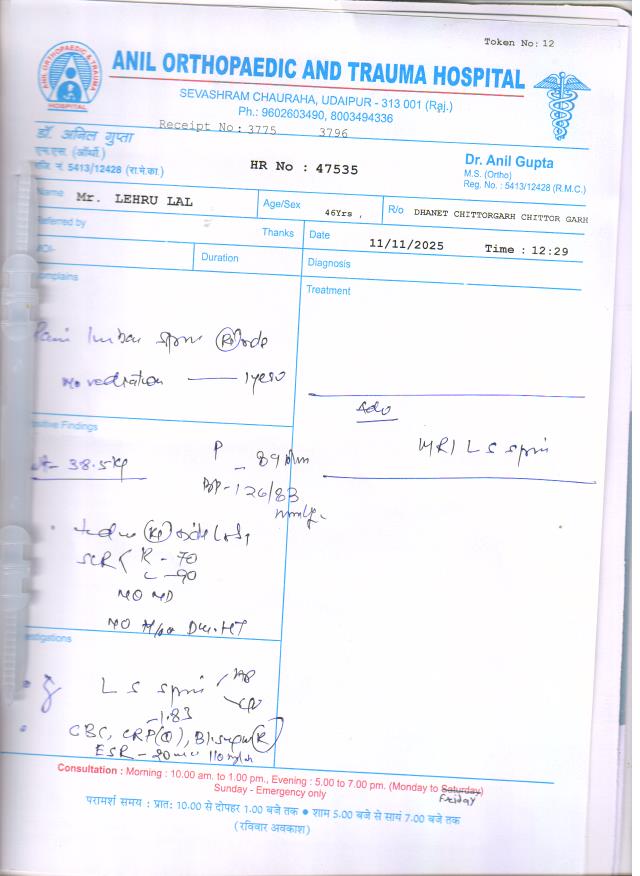 Token No: 12
ANIL ORTHOPAEDIC & TRAUMA HOSPITAL
ANIL ORTHOPAEDIC AND TRAUMA HOSPITAL
SEVASHRAM CHAURAHA, UDAIPUR - 313 001 (Raj.)
Ph.: 9602603490, 8003494336
Receipt No: 3775 3796
डॉ. अनिल गुप्ता
एम.एस. (ऑर्थो)
जि. नं. 5413/12428 (रा.मे.का.)
HR No : 47535
Dr. Anil Gupta
M.S. (Ortho)
Reg. No. : 5413/12428 (R.M.C.)
Name Mr. LEHRU LAL
Age/Sex 46Yrs ,
R/o DHANET CHITTORGARH CHITTOR GARH
Referred by Thanks
Date 11/11/2025 Time : 12:29
MOI-
Duration
Diagnosis
Complains
Treatment
Pain lumbar spine (R) side
No radiation — 1 year
Adv
MRI L S spine
Positive Findings
wt- 38.5kg
P - 89 b/m
BP - 126/83
mmHg
side L5 S1
SLR < R - 70
L - 90
NO ND
NO H/o DM. HT
Investigations
L S spine AP
- 1.83
CBC, CRP, Bl. sugar (R)
ESR - 20
Consultation : Morning : 10.00 am. to 1.00 pm., Evening : 5.00 to 7.00 pm. (Monday to Saturday)
Friday
Sunday - Emergency only
परामर्श समय : प्रात: 10.00 से दोपहर 1.00 बजे तक ● शाम 5.00 बजे से सायं 7.00 बजे तक
(रविवार अवकाश)